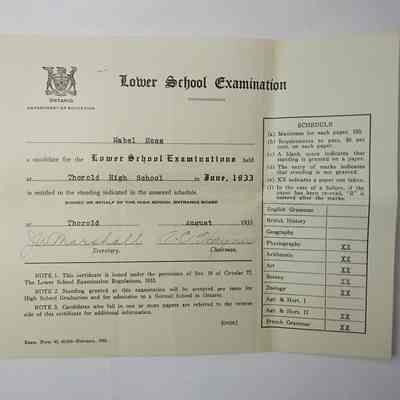 ONTARIO
DEPARTMENT OF EDUCATION
Lower School Examination
Mabel
a candidate for the Lower School Examinations held
at Thorold High School in June, 1933
is entitled to the standing indicated in the annexed schedule.
SIGNED ON BEHALF OF THE HIGH SCHOOL ENTRANCE BOARD
at Thorold August 1933
Marshall
Secretary. Chairman.
NOTE 1. This certificate is issued under the provision of Sec. of Circular
The Lower School Examination Regulations,
NOTE 2. Standing granted at this examination will be accepted pro tanto for
High School Graduation and for admission to a Normal School in Ontario.
NOTE 3. Candidates who fail in one or more papers are referred to the reverse
side of this certificate for additional information.
[OVER]
SCHEDULE
(a) Maximum for each paper, 100.
(b) Requirements to pass, 50 per
cent. on each paper.
(c) A blank space indicates that
standing is granted on a paper.
(d) The entry of marks indicates
that standing is not granted.
(e) XX indicates a paper not taken.
(f) In the case of a failure, if the
paper has been re-read, "R" is
entered after the marks.
English Grammar
British History
Geography
Physiography XX
Arithmetic XX
Art XX
Botany XX
Zoology XX
Agr. & Hort. I XX
Agr. & Hort. II XX
French Grammar XX